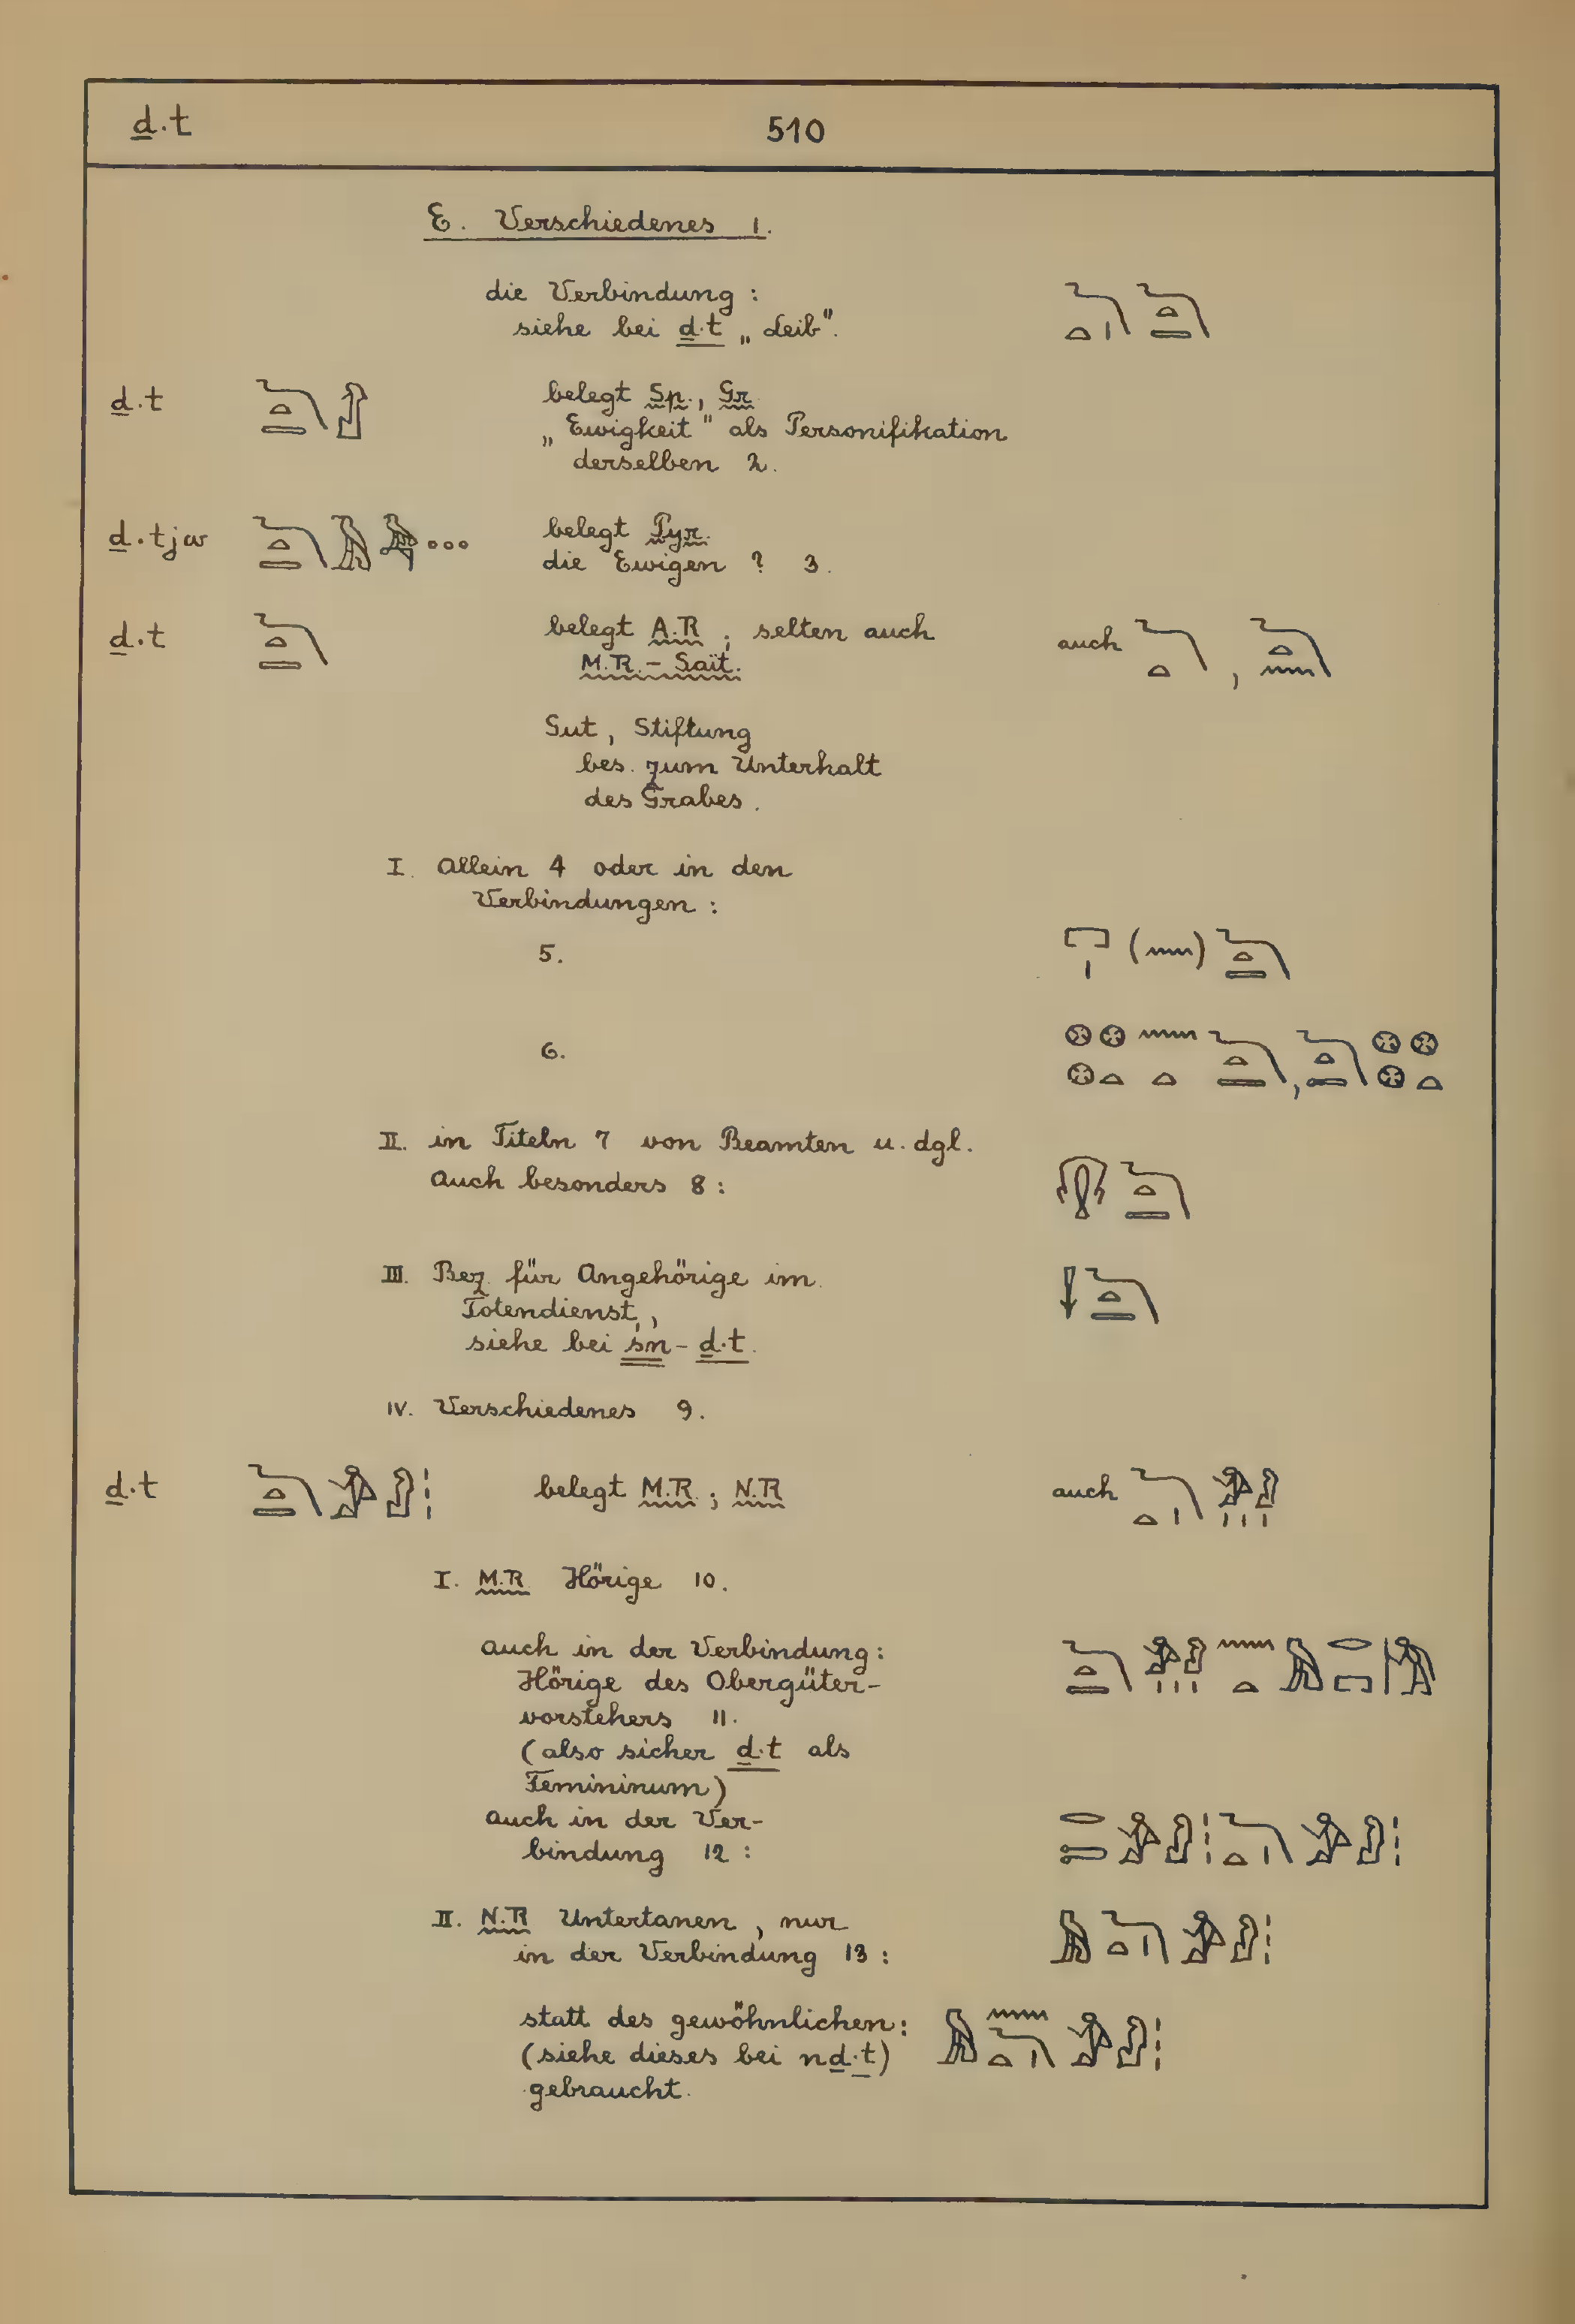 ḏ.t 510
E. Verschiedenes 1.
die Verbindung: 𓆓𓏏𓏤𓆓𓏏𓇿
siehe bei ḏ.t „Leib".
ḏ.t 𓆓𓏏𓇿 belegt Sp., Gr.
„Ewigkeit" als Personifikation
derselben 2.
ḏ.tjw 𓆓𓏏𓇿 belegt Pyr.
die Ewigen ? 3.
ḏ.t 𓆓𓏏𓇿 belegt A.R; selten auch auch 𓆓𓏏, 𓆓𓏏𓈖
M.R.-Saït.
Gut, Stiftung
bes. zum Unterhalt
des Grabes.
I. Allein 4 oder in den
Verbindungen:
5. 𓉐𓏤(𓈖)𓆓𓏏𓇿
6. 𓊖𓊖𓊖𓏏𓈖𓏏𓆓𓏏𓇿, 𓆓𓏏𓇿𓊖𓊖𓊖𓏏
II. in Titeln 7 von Beamten u. dgl.
Auch besonders 8: 𓍛𓆓𓏏𓇿
III. Bez. für Angehörige im 𓌢𓆓𓏏𓇿
Totendienst,
siehe bei śn-ḏ.t.
IV. Verschiedenes 9.
ḏ.t 𓆓𓏏𓇿𓀀𓁐𓏪 belegt M.R.; N.R auch 𓆓𓏏𓏤𓀀𓁐𓏪
I. M.R. Hörige 10.
auch in der Verbindung: 𓆓𓏏𓇿𓀀𓁐𓏪𓈖𓏏𓅓𓂋𓉐𓀙
Hörige des Obergüter-
vorstehers 11.
(also sicher ḏ.t als
Femininum)
auch in der Ver-
bindung 12: 𓂋𓍿𓀀𓁐𓏪𓆓𓏏𓏤𓀀𓁐𓏪
II. N.R Untertanen, nur
in der Verbindung 13: 𓅓𓆓𓏏𓏤𓀀𓁐𓏪
statt des gewöhnlichen: 𓅓𓈖𓆓𓏏𓏤𓀀𓁐𓏪
(siehe dieses bei nḏ.t)
gebraucht.